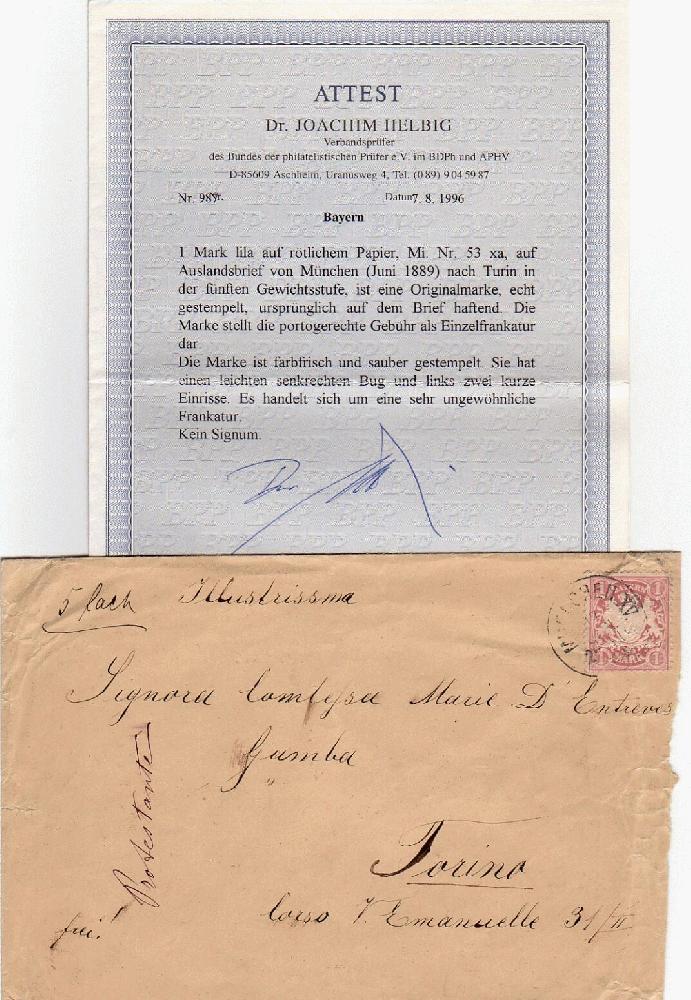 ATTEST
Dr. JOACHIM HELBIG
Verbandsprüfer
des Bundes der philatelistischen Prüfer e.V. im BDPh und APHV
D-85609 Aschheim, Uranusweg 4, Tel. (089) 904 59 87
Nr. 987. Datum 7. 8. 1996
Bayern
1 Mark lila auf rötlichem Papier, Mi. Nr. 53 xa, auf
Auslandsbrief von München (Juni 1889) nach Turin in
der fünften Gewichtsstufe, ist eine Originalmarke, echt
gestempelt, ursprünglich auf dem Brief haftend. Die
Marke stellt die portogerechte Gebühr als Einzelfrankatur
dar.
Die Marke ist farbfrisch und sauber gestempelt. Sie hat
einen leichten senkrechten Bug und links zwei kurze
Einrisse. Es handelt sich um eine sehr ungewöhnliche
Frankatur.
Kein Signum.
5 fach Illustrissma
MUENCHEN IV
1
1 MARK 1
Signora Comtessa Marie D'Entreves
Gumba
Protestante
Torino
frei! Corso V. Emanuelle 31/II